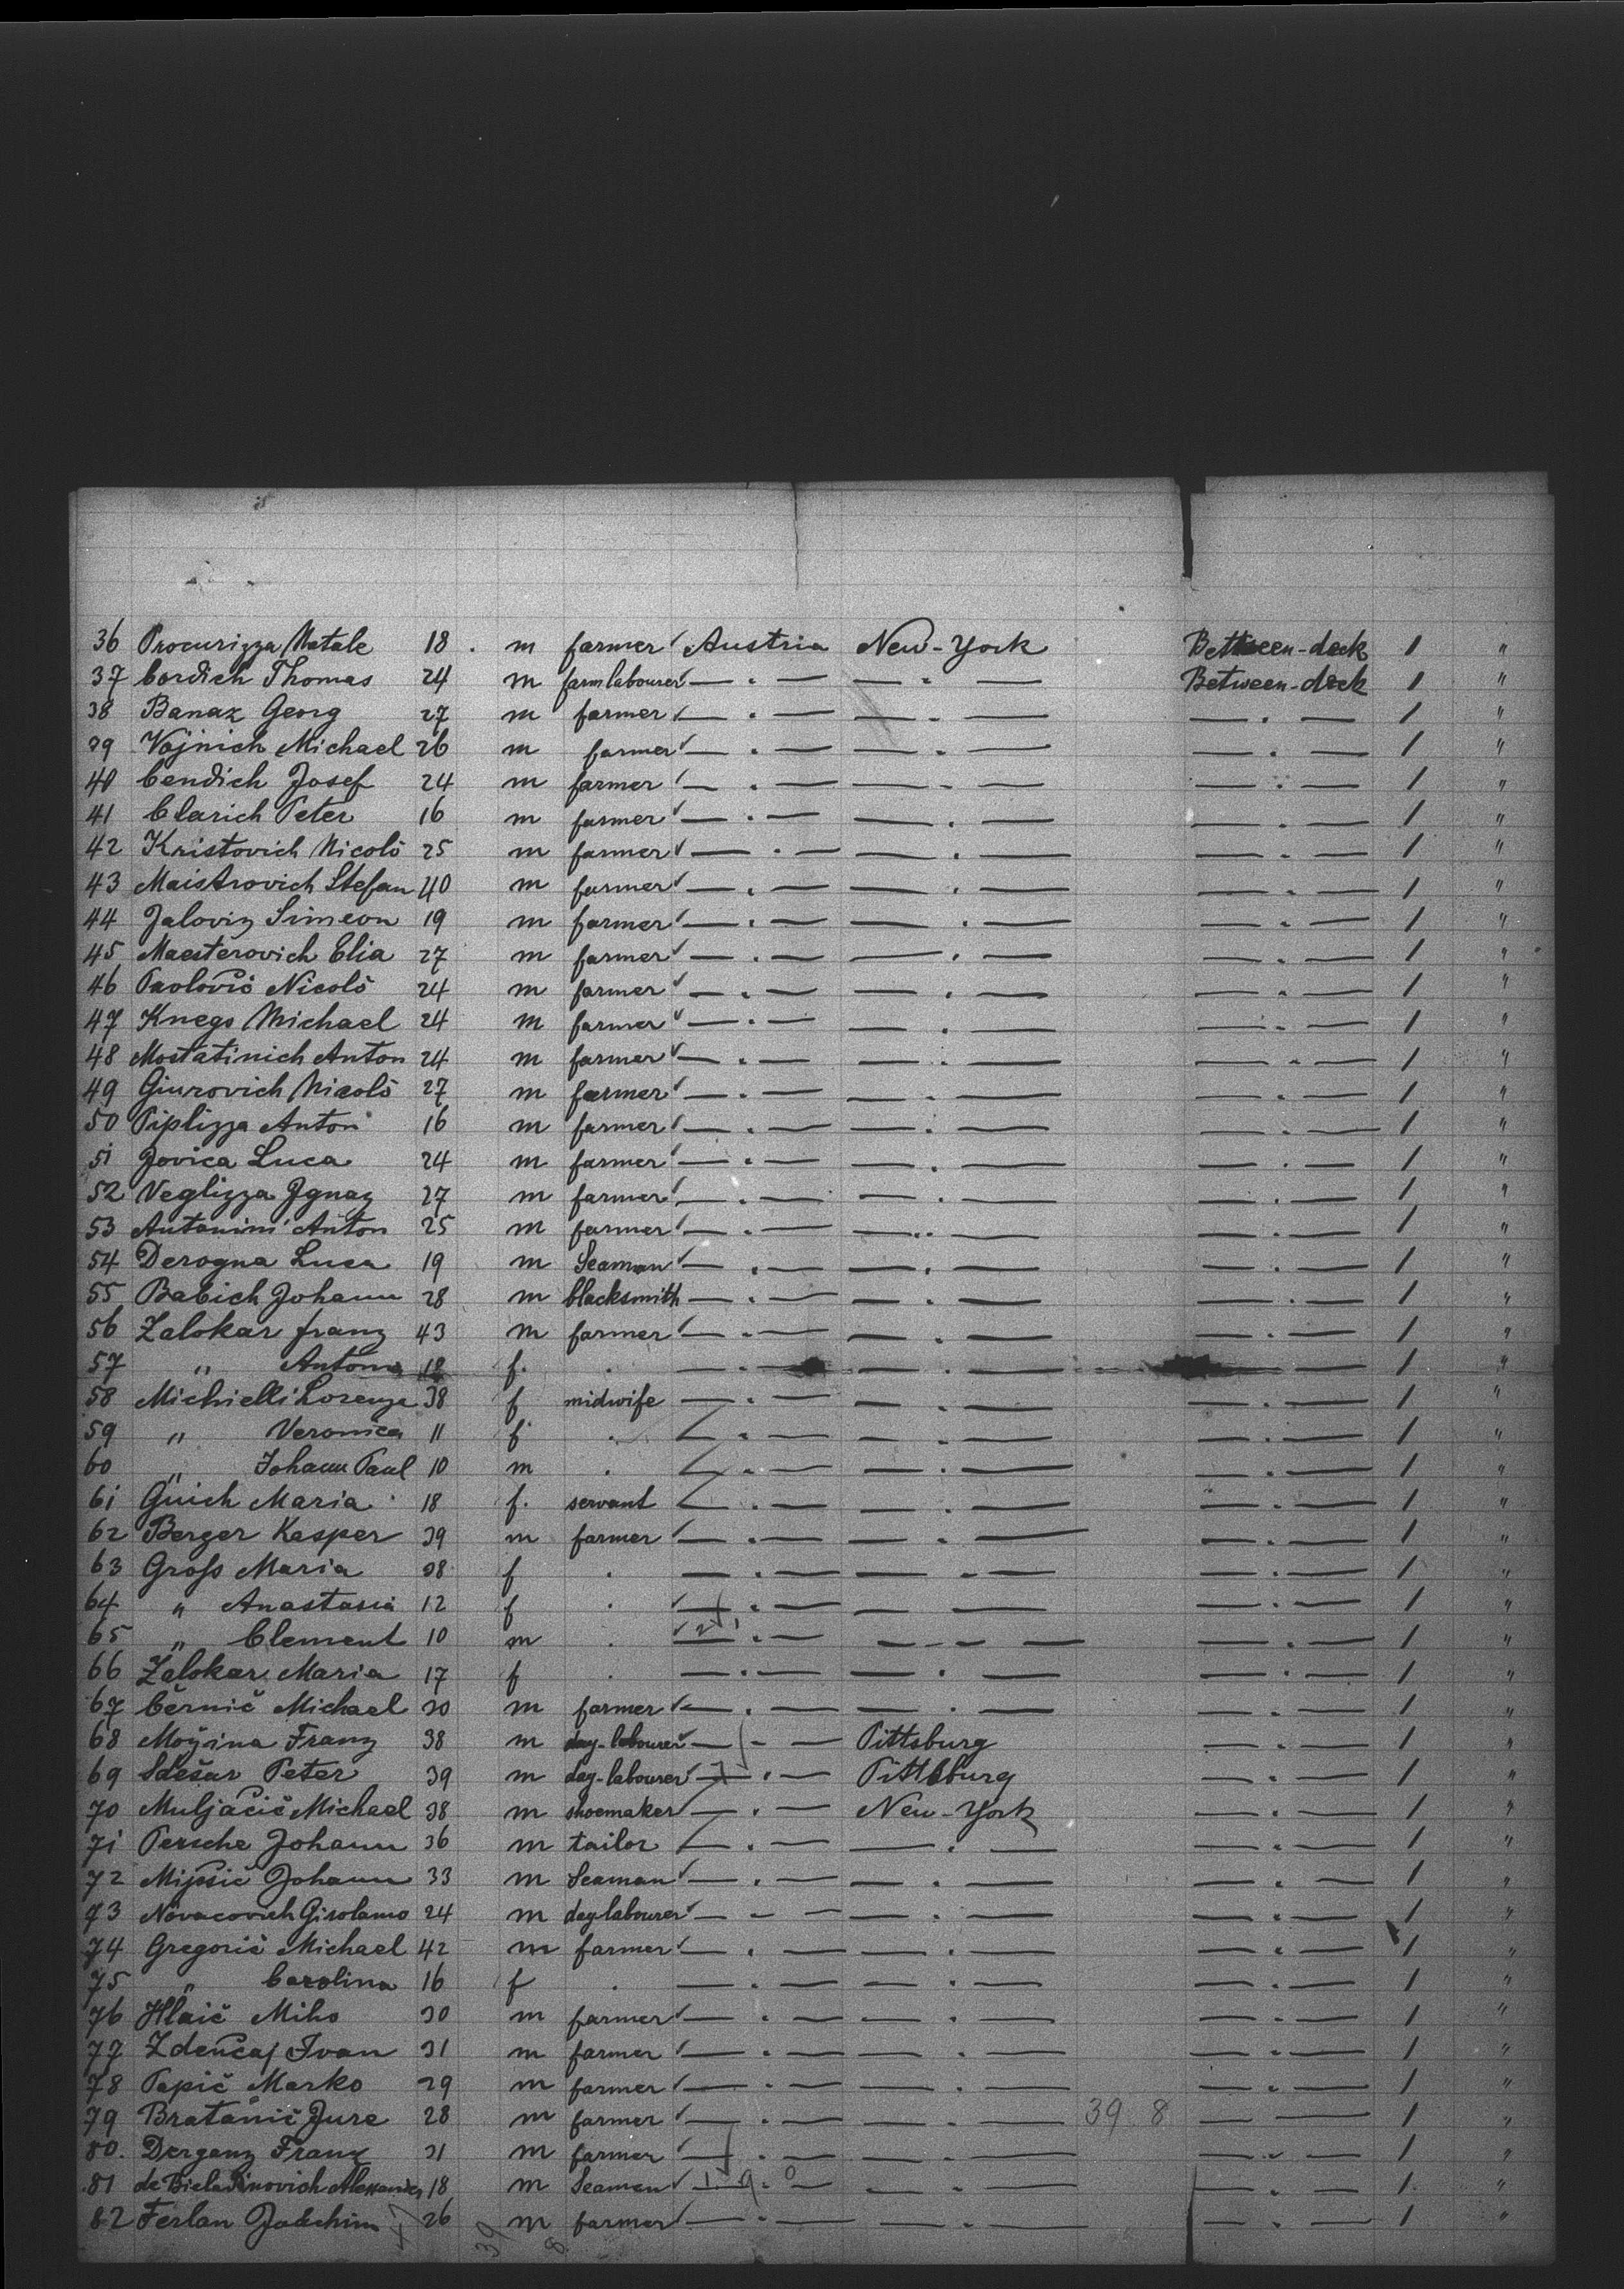 36 Procurizza Natale 18 . m farmer ✓ Austria New-York Between-deck 1 "
37 Cordich Thomas 24 m farm labourer ✓ — " — — " — Between-deck 1 "
38 Banaz Georg 27 m farmer ✓ — " — — " — — " — 1 "
39 Vojnich Michael 26 m farmer ✓ — " — — " — — " — 1 "
40 Cendich Josef 24 m farmer ✓ — " — — " — — " — 1 "
41 Clarich Peter 16 m farmer ✓ — " — — " — — " — 1 "
42 Kristovich Nicolò 25 m farmer ✓ — " — — " — — " — 1 "
43 Maistrovich Stefan 40 m farmer ✓ — " — — " — — " — 1 "
44 Jaloviz Simeon 19 m farmer ✓ — " — — " — — " — 1 "
45 Maesterovich Elia 27 m farmer ✓ — " — — " — — " — 1 "
46 Pavlovič Nicolò 24 m farmer ✓ — " — — " — — " — 1 "
47 Knego Michael 24 m farmer ✓ — " — — " — — " — 1 "
48 Mostatinich Anton 24 m farmer ✓ — " — — " — — " — 1 "
49 Giurovich Nicolò 27 m farmer ✓ — " — — " — — " — 1 "
50 Piplizza Anton 16 m farmer ✓ — " — — " — — " — 1 "
51 Jovica Luca 24 m farmer ✓ — " — — " — — " — 1 "
52 Veglizza Ignaz 27 m farmer ✓ — " — — " — — " — 1 "
53 Antonini Anton 25 m farmer ✓ — " — — " — — " — 1 "
54 Derogna Luca 19 m Seaman ✓ — " — — " — — " — 1 "
55 Babich Johann 28 m blacksmith — " — — " — — " — 1 "
56 Zalokar Franz 43 m farmer ✓ — " — — " — — " — 1 "
57 " Antonia 18 f. . — " — — " — — 1 "
58 Michielli Lorenza 38 f midwife — " — — " — — " — 1 "
59 " Veronica 11 f . — " — — " — — " — 1 "
60 " Johann Paul 10 m . — " — — " — — " — 1 "
61 Guich Maria 18 f. servant — " — — " — — " — 1 "
62 Berger Kasper 39 m farmer ✓ — " — — " — — " — 1 "
63 Groß Maria 38 f . — " — — " — — " — 1 "
64 " Anastasia 12 f . ✓ — " — — — — " — 1 "
65 " Clement 10 m . ✓ — " — — " — — " — 1 "
66 Zalokar Maria 17 f . — " — — " — — " — 1 "
67 Černič Michael 30 m farmer ✓ — " — — " — — " — 1 "
68 Možina Franz 38 m day-labourer ✓ — " — Pittsburg — " — 1 "
69 Sdešar Peter 39 m day-labourer ✓ — " — Pittsburg — " — 1 "
70 Muljačič Michael 38 m shoemaker — " — New-York — " — 1 "
71 Persche Johann 36 m tailor — " — — " — — " — 1 "
72 Mijsič Johann 33 m Seaman ✓ — " — — " — — " — 1 "
73 Novacovich Girolamo 24 m day labourer ✓ — " — — " — — " — 1 "
74 Gregorič Michael 42 m farmer ✓ — " — — " — — " — 1 "
75 " Carolina 16 f . — " — — " — — " — 1 "
76 Hlaič Miho 30 m farmer ✓ — " — — " — — " — 1 "
77 Zdenčaj Ivan 31 m farmer ✓ — " — — " — — " — 1 "
78 Papič Marko 29 m farmer ✓ — " — — " — — " — 1 "
79 Bratanič Jure 28 m farmer ✓ — " — — " — 39 8 — — 1 "
80. Derganz Franz 31 m farmer ✓ — " — — " — — " — 1 "
81 de Biela Dinovich Alexander 18 m Seaman ✓ — " — — " — — " — 1 "
82 Ferlan Joachim 26 m farmer ✓ — " — — " — — " — 1 "
39 8